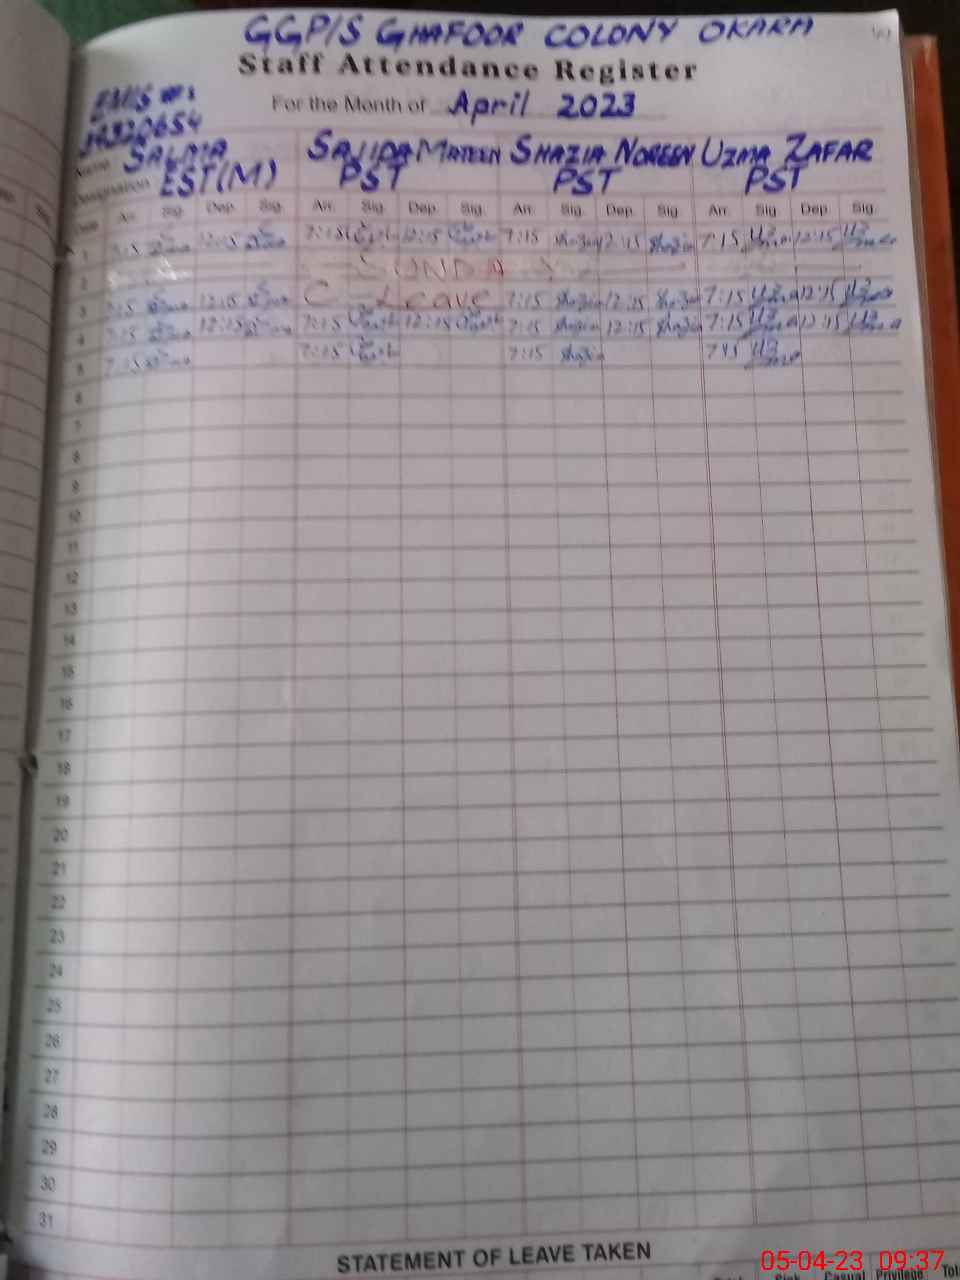 GGP/S GHAFOOR COLONY OKARA
Staff Attendance Register
For the Month of April 2023
EMIS #:
Name SALMA SAJIDA MATEEN SHAZIA NOREEN UZMA ZAFAR
Designation EST(M) PST PST PST
Date Arr. Sig. Dep. Sig. Arr. Sig. Dep. Sig. Arr. Sig. Dep. Sig. Arr. Sig. Dep Sig.
1 7:15 12:15 7:15 12:15 7:15 Shazia 12:15 Shazia 7:15 Uzma 12:15 Uzma
2 SUNDAY
3 7:15 12:15 C Leave 7:15 Shazia 12:15 Shazia 7:15 Uzma 12:15 Uzma
4 7:15 12:15 7:15 12:15 7:15 Shazia 12:15 Shazia 7:15 Uzma 12:15 Uzma
5 7:15 7:15 7:15 Shazia Uzma
6
7
8
9
10
11
12
13
14
15
16
17
18
19
20
21
22
23
24
25
26
27
28
29
30
31
STATEMENT OF LEAVE TAKEN
05-04-23 09:37
Sick Casual Privilege